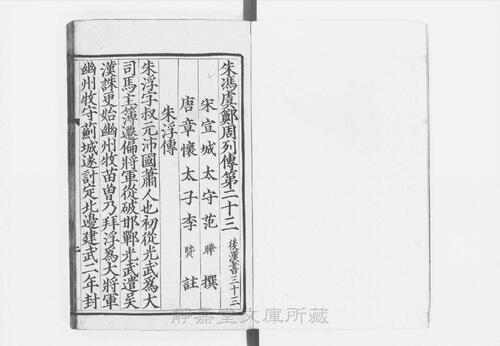 朱馮虞鄭周列傳第二十三 後漢書三十三
宋宣城太守范曄撰
唐章懷太子李賢註
朱浮傳
朱浮字叔元沛國蕭人也初從光武爲大
司馬主簿遷偏將軍從破邯鄲光武遣吴
漢誅更始幽州牧苗曾乃拜浮爲大將軍
幽州牧守薊城遂討定北邊建武二年封
靜嘉堂文庫所藏